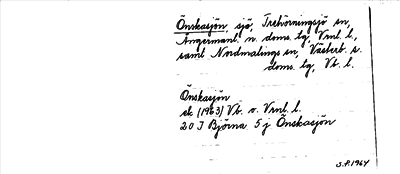 Önskasjön, sjö, Trehörningsjö sn,
Ångermanl. n. doms. lg, Vnl. l.,
samt Nordmalings sn, Västerb. s.
doms. lg, Vb. l.
Önskasjön
ek (1963) Vb. o. Vnl. l.
20 J Björna 5 j Önskasjön
S.P. 1964